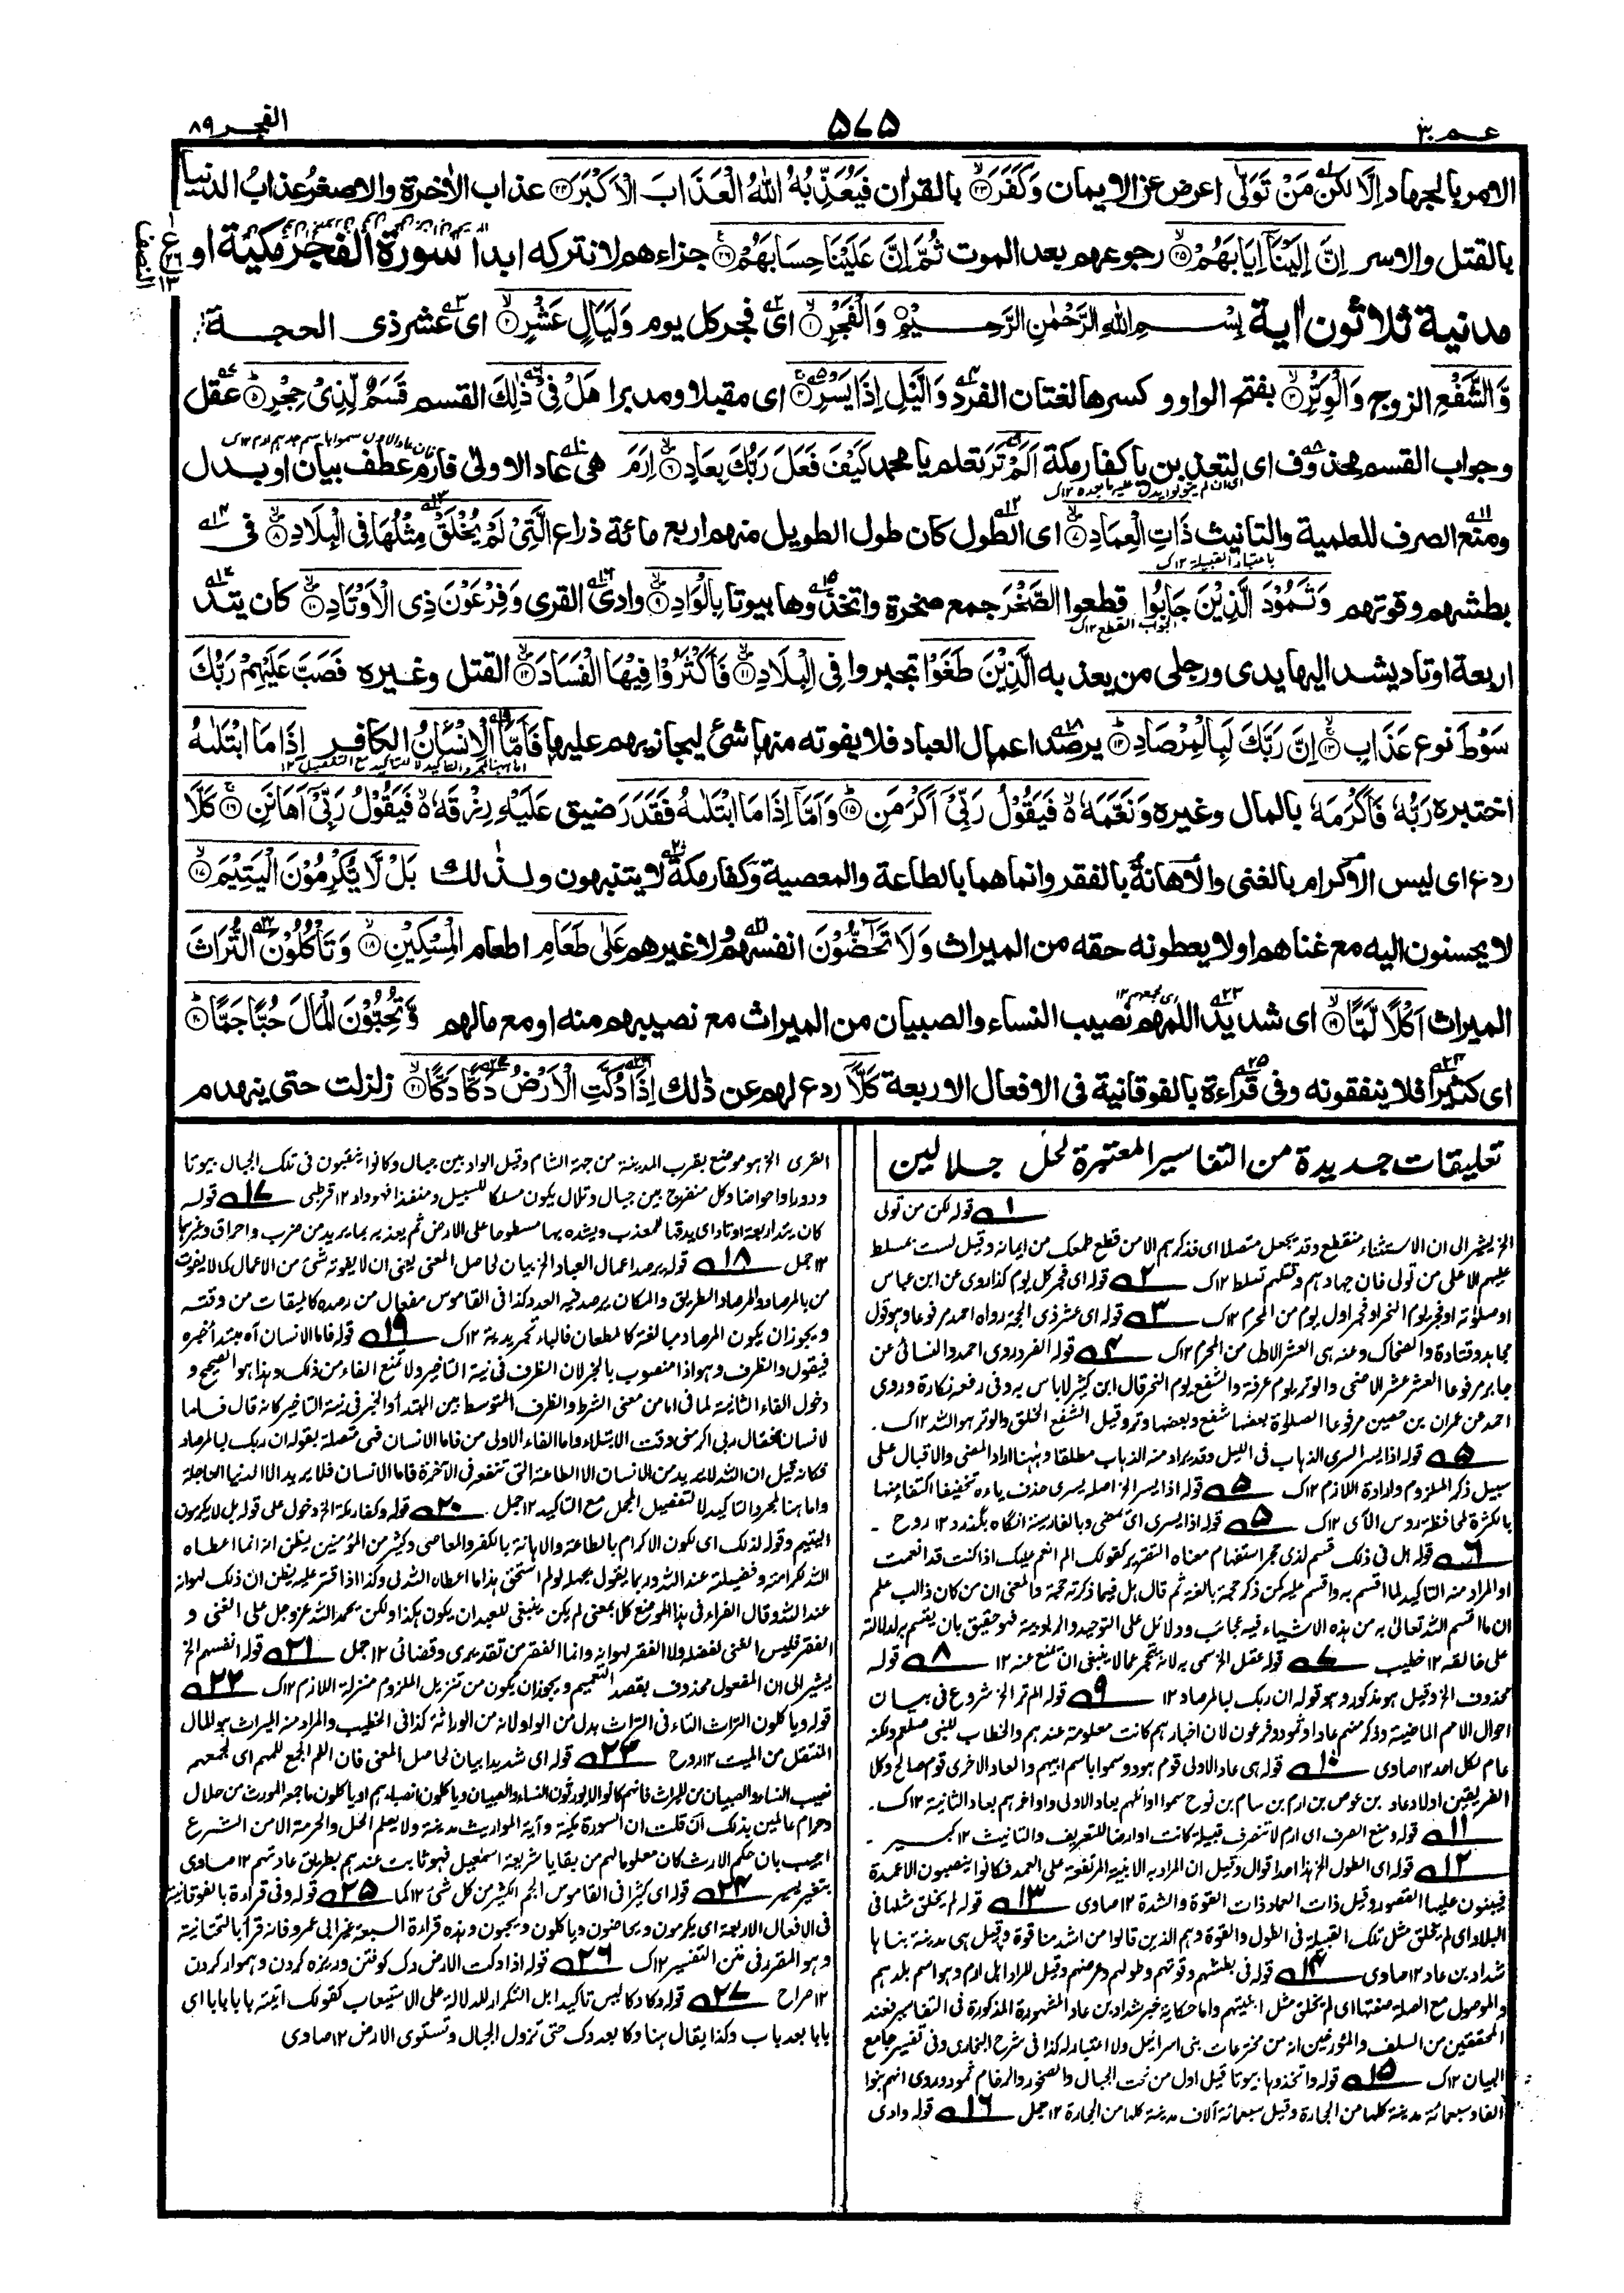 عم ٣٠
٥٧٥
الفجر ٨٩
الامر بالجهاد اِلَّا لكن مَنْ تَوَلّٰى اعرض عن الايمان وَكَفَرَ ﴿٢٣﴾ بالقران فَيُعَذِّبُهُ اللّٰهُ الْعَذَابَ الْاَكْبَرَ ﴿٢٤﴾ عذاب الاٰخرة والاصغر عذابُ الدنيا
بالقتل والاسر اِنَّ اِلَيْنَاۤ اِيَابَهُمْ ﴿٢٥﴾ رجوعهم بعد الموت ثُمَّ اِنَّ عَلَيْنَا حِسَابَهُمْ ﴿٢٦﴾ جزاءهم لا نتركه ابدا سورة الفجر مكية او
مدنية ثلاثون اٰية بِسْمِ اللّٰهِ الرَّحْمٰنِ الرَّحِيْمِ وَالْفَجْرِ ﴿١﴾ اى فجر كل يوم وَلَيَالٍ عَشْرٍ ﴿٢﴾ اى عشر ذى الحجة
وَّالشَّفْعِ الزوج وَالْوَتْرِ ﴿٣﴾ بفتح الواو وكسرها لغتان الفرد وَالَّيْلِ اِذَا يَسْرِ ﴿٤﴾ اى مقبلا ومدبرا هَلْ فِيْ ذٰلِكَ القسم قَسَمٌ لِّذِيْ حِجْرٍ ﴿٥﴾ عقل
وجواب القسم محذوف اى لتعذبن يا كفار مكة اَلَمْ تَرَ تعلم يا محمد كَيْفَ فَعَلَ رَبُّكَ بِعَادٍ ﴿٦﴾ اِرَمَ هى عاد الاولى فارم عطف بيان او بدل
ومنع الصرف للعلمية والتانيث ذَاتِ الْعِمَادِ ﴿٧﴾ اى الطول كان طول الطويل منهم اربع مائة ذراع الَّتِيْ لَمْ يُخْلَقْ مِثْلُهَا فِي الْبِلَادِ ﴿٨﴾ فى
بطشهم وقوتهم وَثَمُوْدَ الَّذِيْنَ جَابُوا قطعوا الصَّخْرَ جمع صخرة واتخذوها بيوتا بِالْوَادِ ﴿٩﴾ وادى القرى وَفِرْعَوْنَ ذِي الْاَوْتَادِ ﴿١٠﴾ كان يتد
اربعة اوتاد يشد اليها يدى ورجلى من يعذبه الَّذِيْنَ طَغَوْا تجبروا فِي الْبِلَادِ ﴿١١﴾ فَاَكْثَرُوْا فِيْهَا الْفَسَادَ ﴿١٢﴾ القتل وغيره فَصَبَّ عَلَيْهِمْ رَبُّكَ
سَوْطَ نوع عَذَابٍ ﴿١٣﴾ اِنَّ رَبَّكَ لَبِالْمِرْصَادِ ﴿١٤﴾ يرصد اعمال العباد فلا يفوته منها شئ ليجازيهم عليها فَاَمَّا الْاِنْسَانُ الكافر اِذَا مَا ابْتَلٰىهُ
اختبره رَبُّهٗ فَاَكْرَمَهٗ بالمال وغيره وَنَعَّمَهٗ فَيَقُوْلُ رَبِّيْۤ اَكْرَمَنِ ﴿١٥﴾ وَاَمَّاۤ اِذَا مَا ابْتَلٰىهُ فَقَدَرَ ضيق عَلَيْهِ رِزْقَهٗ فَيَقُوْلُ رَبِّيْۤ اَهَانَنِ ﴿١٦﴾ كَلَّا
ردع اى ليس الاكرام بالغنى والاهانة بالفقر وانما هما بالطاعة والمعصية وكفار مكة لا يتنبهون ولذٰلك بَلْ لَّا يُكْرِمُوْنَ الْيَتِيْمَ ﴿١٧﴾
لا يحسنون اليه مع غناهم او لا يعطونه حقه من الميراث وَلَا تَحٰٓضُّوْنَ انفسهم ولا غيرهم عَلٰى طَعَامِ اطعام الْمِسْكِيْنِ ﴿١٨﴾ وَتَاْكُلُوْنَ التُّرَاثَ
الميراث اَكْلًا لَّمًّا ﴿١٩﴾ اى شديد اللمهم نصيب النساء والصبيان من الميراث مع نصيبهم منه او مع مالهم وَّتُحِبُّوْنَ الْمَالَ حُبًّا جَمًّا ﴿٢٠﴾
اى كثيرا فلا ينفقونه وفى قراءة بالفوقانية فى الافعال الاربعة كَلَّاۤ ردع لهم عن ذٰلك اِذَا دُكَّتِ الْاَرْضُ دَكًّا دَكًّا ﴿٢١﴾ زلزلت حتى ينهدم
تعليقات جديدة من التفاسير المعتبرة لحل جلالين
١ قوله لكن من تولى
الخ يشير الى ان الاستثناء منقطع وقد يجعل متصلا اى فذكرهم الا من قطع طمعك من ايمانه وقيل لست بمسلط
عليهم الا على من تولى فان جهادهم وقتلهم تسلط ١٢ك ٢ قوله اى فجر كل يوم كذا روى عن ابن عباس
او صلوته او فجر يوم النحر او فجر اول يوم من المحرم ١٢ك ٣ قوله اى عشر ذى الحجة رواه احمد مرفوعا وهو قول
مجاهد وقتادة والضحاك وعنه هى العشر الاول من المحرم ١٢ك ٤ قوله الفرد روى احمد والنسائى عن
جابر مرفوعا العشر عشر الاضحى والوتر يوم عرفة والشفع يوم النحر قال ابن كثير لا باس به وفى رفعه نكارة وروى
احمد عن عمران بن حصين مرفوعا الصلوة بعضها شفع وبعضها وتر وقيل الشفع الخلق والوتر هو الله ١٢ك
٥ قوله اذا يسر السرى الذهاب فى الليل وقد يراد منه الذهاب مطلقا وههنا اراد المضى والاقبال على
سبيل ذكر الملزوم وارادة اللازم ١٢ك ٥ قوله اذا يسر الخ اصله يسرى حذف ياءه تخفيفا اكتفاء منها
بالكسرة لمحافظة روس الآى ١٢ك ٥ قوله اذا يسرى اى يمضى وبالفارسية انگاه بگذرد ١٢ روح
٦ قوله هل فى ذلك قسم لذى حجر استفهام معناه التقرير كقولك الم انعم عليك اذا كنت قد انعمت
او المراد منه التاكيد لما اقسم به واقسم عليه كمن ذكر حجة بالغة ثم قال هل فيما ذكرته حجة والمعنى ان من كان ذا لب علم
ان ما اقسم الله تعالى به من هذه الاشياء فيه عجائب ودلائل على التوحيد والربوبية فهو حقيق بان يقسم به لدلالته
على خالقه ١٢ خطيب ٧ قوله عقل الخ سمى به لانه يحجر عما لا ينبغى ان تمنع عنه ١٢ ٨ قوله
محذوف الخ وقيل هو مذكور وهو قوله ان ربك لبالمرصاد ١٢ ٩ قوله الم تر الخ شروع فى بيان
احوال الامم الماضية وذكر منهم عادا وثمود وفرعون لان اخبارهم كانت معلومة عندهم والخطاب للنبى صلعم ولكنه
عام لكل احد ١٢ صاوى ١٠ قوله هى عاد الاولى قوم هود وسموا باسم ابيهم والعاد الاخرى قوم صالح وكلا
الفريقين اولاد عاد بن عوص بن ارم بن سام بن نوح سموا اوائلهم بعاد الاولى واواخرهم بعاد الثانية ١٢ك
١١ قوله ومنع الصرف اى ارم لا تنصرف قبيلة كانت او ارضا للتعريف والتانيث ١٢ كبير
١٢ قوله اى الطول الخ هذا احد اقوال وقيل ان المراد به الابنية المرتفعة على العمد فكانوا ينصبون الاعمدة
فيبنون عليها القصور وقيل ذات العماد ذات القوة والشدة ١٢ صاوى ١٣ قوله لم يخلق مثلها فى
البلاد اى لم يخلق مثل تلك القبيلة فى الطول والقوة وهم الذين قالوا من اشد منا قوة وقيل هى مدينة بناها
شداد بن عاد ١٢ صاوى ١٤ قوله فى بطشهم وقوتهم وطولهم وعرضهم وقيل المراد اهل ارم وهو اسم بلدهم
والموصول مع الصلة صفتها اى لم يخلق مثل ابنيتهم واما حكاية خبر شداد بن عاد المشهورة المذكورة فى التفاسير فعند
المحققين من السلف والمؤرخين انه من مخترعات بنى اسرائيل ولا اعتبار له كذا فى شرح البخارى وفى تفسير جامع
البيان ١٢ك ١٥ قوله واتخذوها بيوتا قيل اول من نحت الجبال والصخور والرخام ثمود وروى انهم بنوا
الفا وسبعمائة مدينة كلها من الحجارة وقيل سبعمائة آلاف مدينة كلها من الحجارة ١٢ جمل ١٦ قوله وادى
القرى الخ هو موضع بقرب المدينة من جهة الشام وقيل الواد بين جبال وكانوا ينقبون فى تلك الجبال بيوتا
ودورا واحواضا وكل منفرج بين جبال وتلال يكون مسلكا للسيل ومنفذا فهو واد ١٢ قرطبى ١٧ قوله
كان يتد اربعة اوتاد اى يدقها للمعذب ويشده بها مسطوحا على الارض ثم يعذبه بما يريد من ضرب واحراق وغيرها
١٢ جمل ١٨ قوله يرصد اعمال العباد الخ بيان لحاصل المعنى يعنى ان لا يفوته شئ من الاعمال كما لا يفوت
من بالمرصاد والمرصاد الطريق والمكان يرصد فيه العدو كذا فى القاموس مفعال من رصده كالميقات من وقته
ويجوز ان يكون المرصاد مبالغة كالمطعان فالباء تجريدية ١٢ك ١٩ قوله فاما الانسان آه مبتدأ خبره
فيقول والظرف وهو اذا منصوب بالخبر لان الظرف فى نية التاخير ولا تمنع الفاء من ذلك وهذا هو الصحيح و
دخول الفاء الثانية لما فى اما من معنى الشرط والظرف المتوسط بين المبتدأ والخبر فى نية التاخير كانه قال فاما
الانسان فقال ربى اكرمنى وقت الابتلاء واما الفاء الاولى من فاما الانسان فهى متصلة بقوله ان ربك لبالمرصاد
فكانه قيل ان الله لا يريد من الانسان الا الطاعة التى تنفعه فى الآخرة فاما الانسان فلا يريد الا الدنيا العاجلة
واما هنا لمجرد التاكيد لا لتفصيل المجمل مع التاكيد ١٢ جمل ٢٠ قوله وكفار مكة الخ دخول على قوله بل لا يكرمون
اليتيم وقوله لذلك اى يكون الاكرام بالطاعة والاهانة بالكفر والمعاصى وكثير من المؤمنين يظن انه انما اعطاه
الله لكرامته وفضيلته عند الله وربما يقول بجهله لو لم استحق بهذا ما اعطاه الله لى وكذا اذا قتر عليه يظن ان ذلك لهوانه
عند الله وقال الفراء فى هذا الموضع كلا بمعنى لم يكن ينبغى للعبد ان يكون هكذا ولكن يحمد الله عز وجل على الغنى و
الفقر فليس الغنى لفضله ولا الفقر لهوانه وانما الفقر من تقديرى وقضائى ١٢ جمل ٢١ قوله انفسهم الخ
يشير الى ان المفعول محذوف بقصد التعميم ويجوز ان يكون من تنزيل الملزوم منزلة اللازم ١٢ك ٢٢
قوله وياكلون التراث التاء فى التراث بدل من الواو لانه من الوراثة كذا فى الخطيب والمراد منه الميراث هو المال
المنتقل من الميت ١٢ روح ٢٣ قوله اى شديدا بيان لحاصل المعنى فان اللم الجمع للمهم اى لجمعهم
نصيب النساء والصبيان من الميراث فانهم كانوا لا يورثون النساء والصبيان وياكلون انصباءهم او ياكلون ما جمعه المورث من حلال
وحرام عالمين بذلك ان قلت ان السورة مكية وآية المواريث مدنية ولا يعلم الحل والحرمة الا من الشرع
اجيب بان حكم الارث كان معلوما لهم من بقايا شريعة اسمعيل فهو ثابت عندهم بطريق عادتهم ١٢ صاوى
بتغير يسير ٢٤ قوله اى كثيرا فى القاموس الجم الكثير من كل شئ ١٢ كما ٢٥ قوله وفى قراءة بالفوقانية
فى الافعال الاربعة اى يكرمون ويحاضون وياكلون ويحبون وهذه قراءة السبعة غير ابى عمرو فانه قرأ بالتحتانية
وهو المقرر فى متن التفسير ١٢ك ٢٦ قوله اذا دكت الارض دك كوفتن وريزه كردن وهموار كردن
١٢ صراح ٢٧ قوله دكا دكا ليس تاكيدا بل التكرار للدلالة على الاستيعاب كقولك اتيته بابا بابا اى
بابا بعد باب وكذا يقال هنا دكا بعد دك حتى تزول الجبال وتستوى الارض ١٢ صاوى